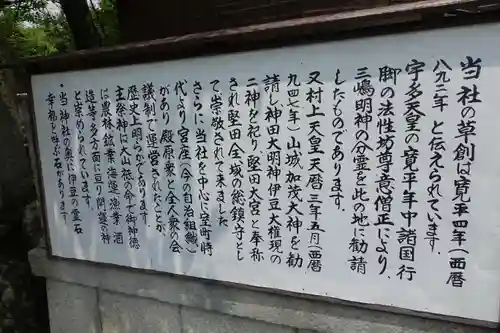 当社の草創は寛平四年(西暦
八九二年)と伝えられています。
宇多天皇の寛平年中諸国行
脚の法性坊尊意僧正により、
三嶋明神の分霊を此の地に勧請
したものであります。
又村上天皇天暦三年五月(西暦
九四七年)山城加茂大神を勧
請し神田大明神伊豆大権現の
二神を祀り、堅田大宮と奉称
され堅田全域の総鎮守とし
て崇敬されて来ました
さらに当社を中心に室町時
代より宮座(今の自治組織)
があり殿原衆と全人衆の会
議制で運営されたことが、
歴史上明らかであります。
主祭神は大山祇命で御神徳
は農林鉱業海運漁業酒
造等多方面に亘り開運の神
と崇められています。
・当神社の奥に伊豆の霊石
幸龍と呼ぶ石があります